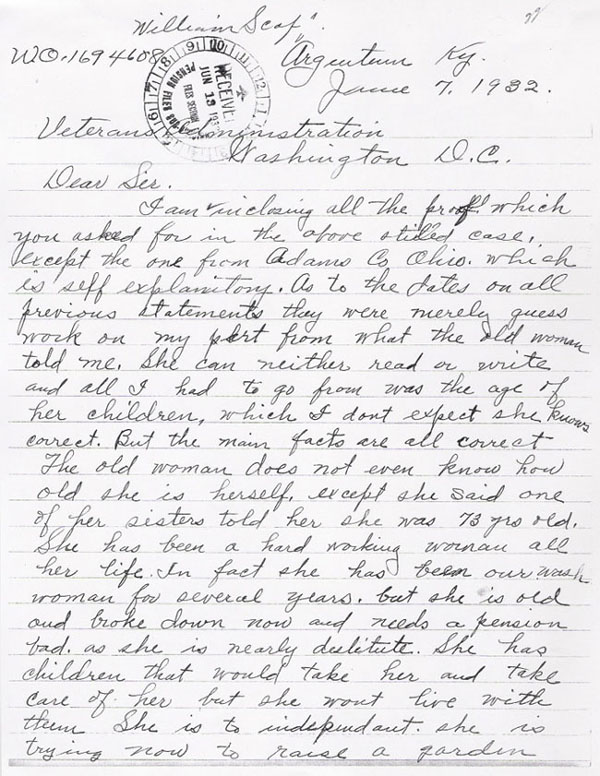 "William Scaf".
WO.1694608
Argentum Ky.
June 7, 1932.
RECEIVED
JUN 13 193
FILES SECTION
PENSION FILES
Veterans Administration
Washington D.C.
Dear Ser.
I am inclosing all the proof which
you asked for in the above stilled case,
except the one from Adams Co Ohio. which
is self explanitory. As to the dates on all
previous statements they were merely guess
work on my part from what the old woman
told me. She can neither read or write
and all I had to go from was the age of
her children, which I dont expect she knows
correct. But the main facts are all correct
The old woman does not even know how
old she is herself, except she said one
of her sisters told her she was 73 yrs old.
She has been a hard working woman all
her life. In fact she has been our wash
woman for several years. but she is old
and broke down now and needs a pension
bad. as she is nearly destitute. She has
children that would take her and take
care of her but she wont live with
them She is to independant. she is
trying now to raise a garden